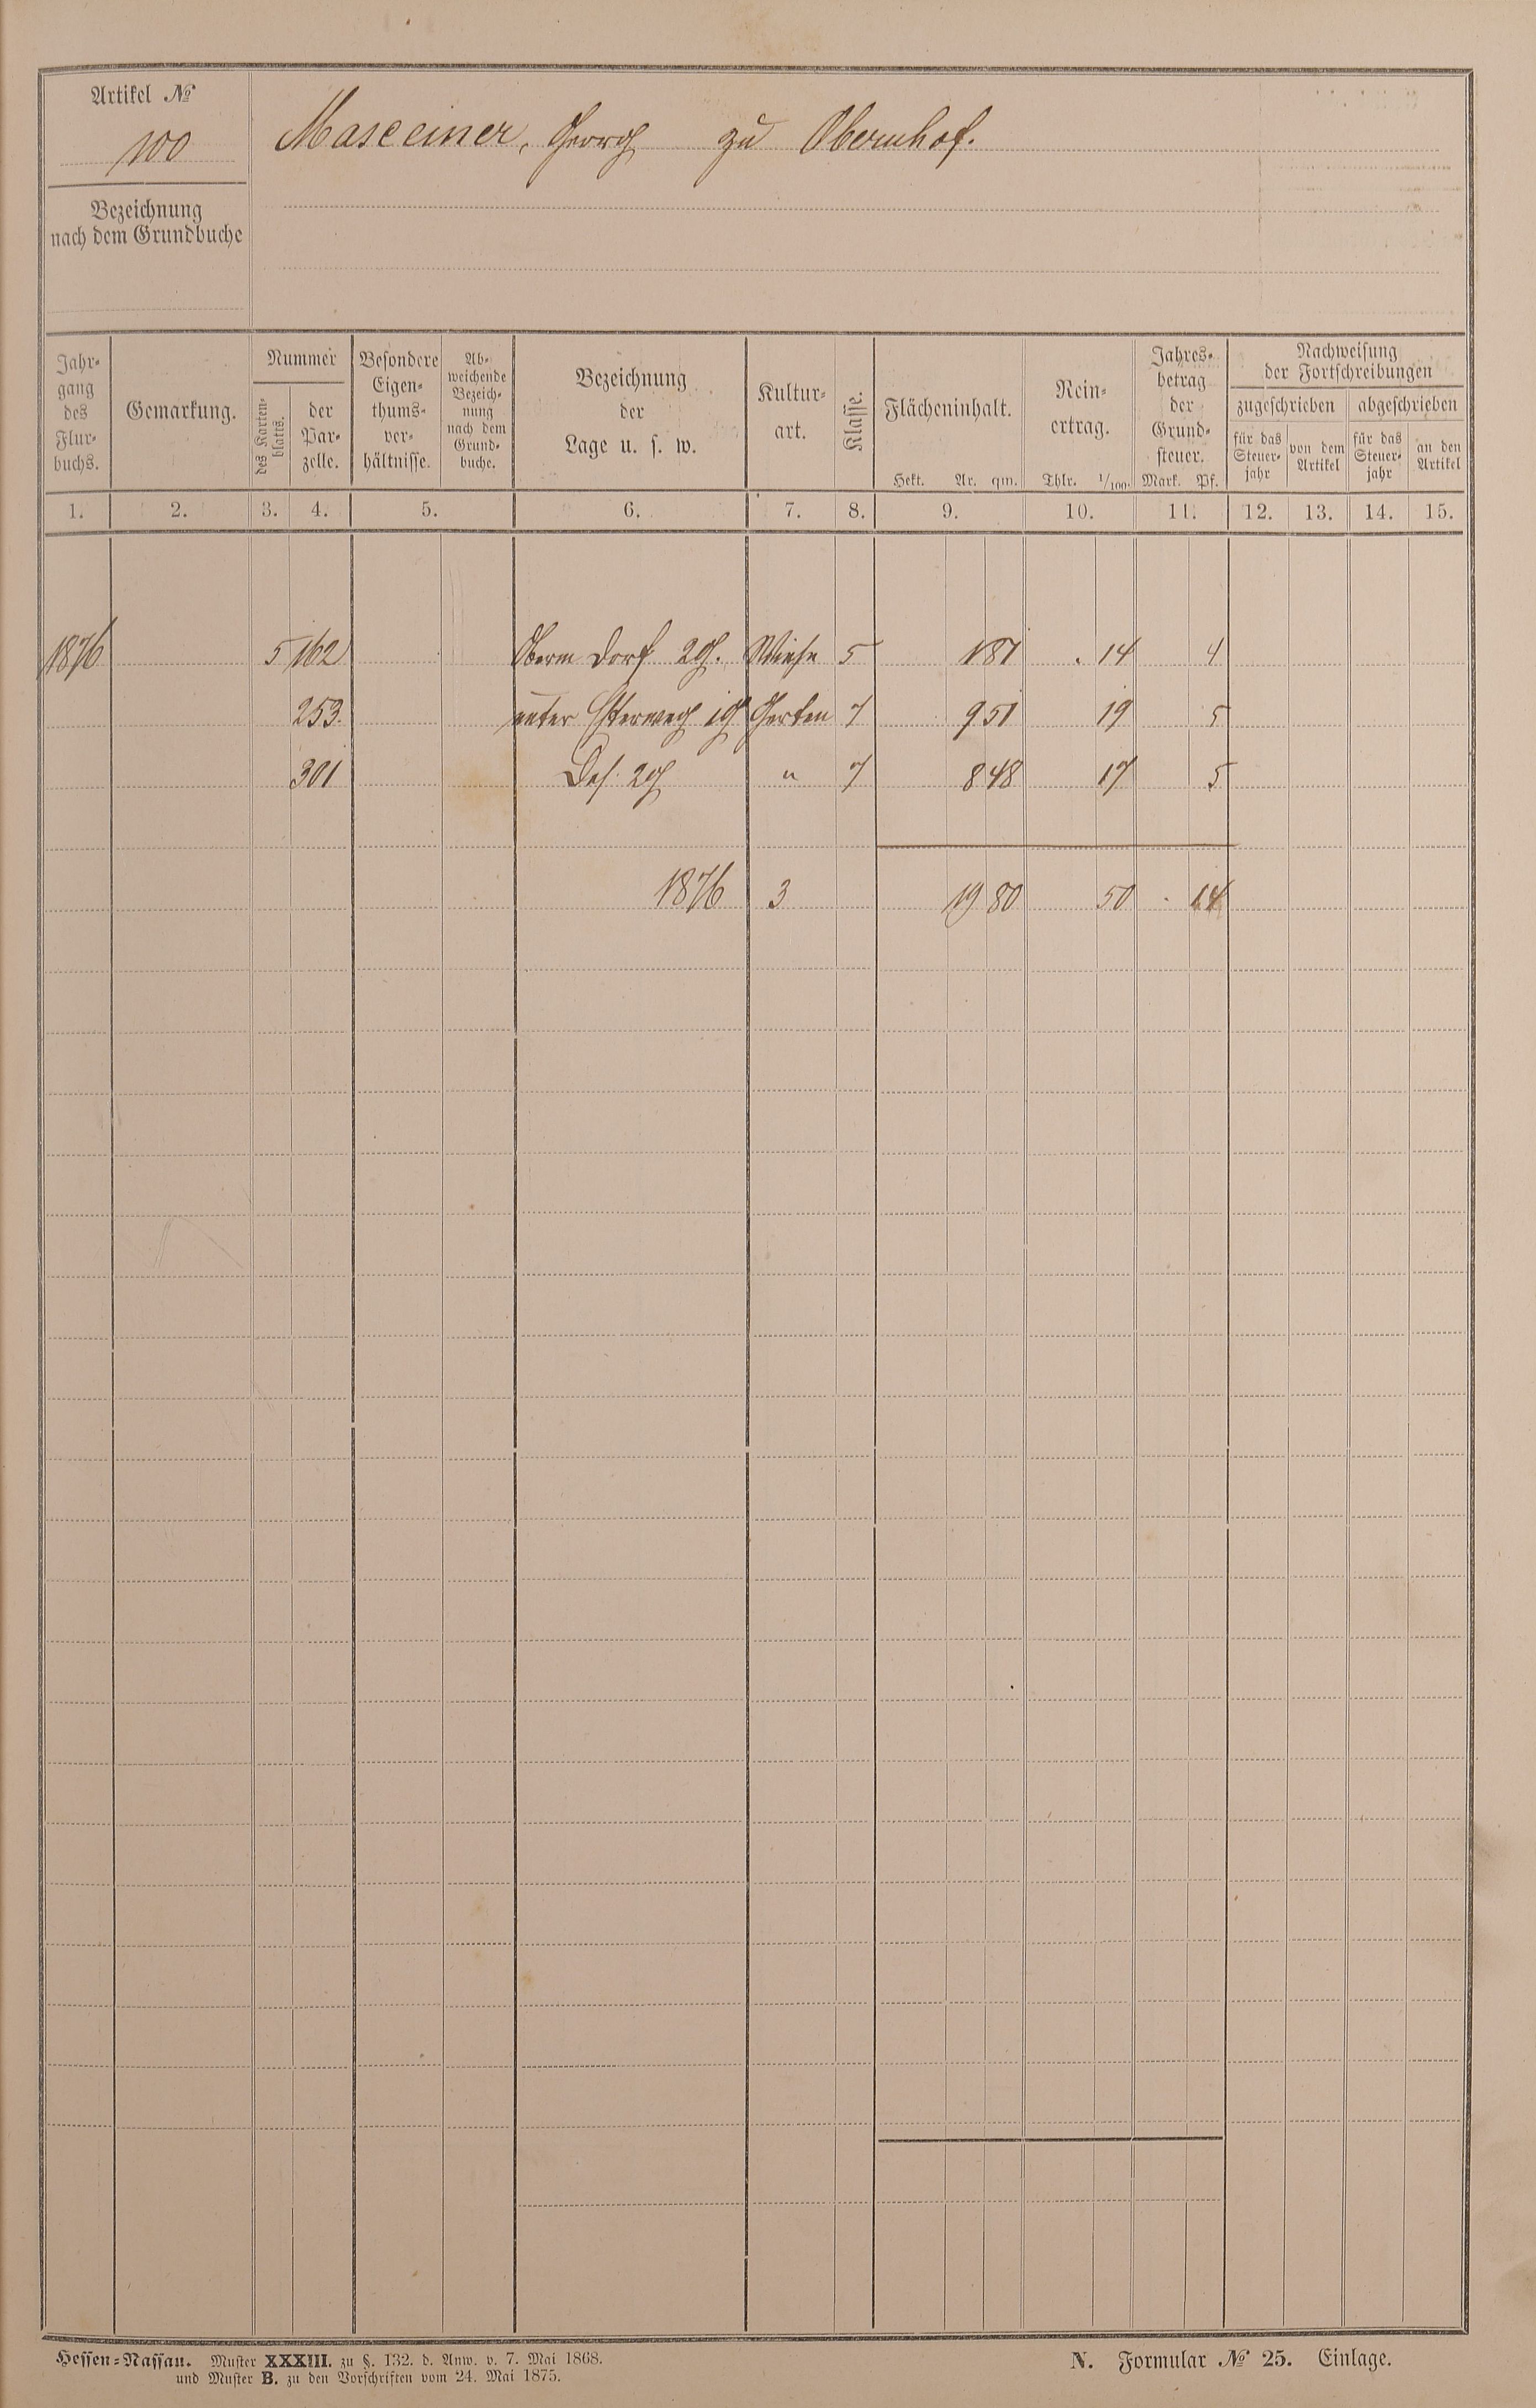 Artikel №
100
Masceiner, Georg zu Obernhof.
Bezeichnung
nach dem Grundbuche
Jahr-
gang
des
Flur-
buchs.
Gemarkung.
Nummer
des Karten-
blatts.
der
Par-
zelle.
Besondere
Eigen-
thums-
ver-
hältnisse.
Ab-
weichende
Bezeich-
nung
nach dem
Grund-
buche.
Bezeichnung
der
Lage u. s. w.
Kultur-
art.
Klasse.
Flächeninhalt.
Hekt. Ar. qm.
Rein-
ertrag.
Thlr. 1/100.
Jahres-
betrag
der
Grund-
steuer.
Mark. Pf.
Nachweisung
der Fortschreibungen
zugeschrieben abgeschrieben
für das
Steuer-
jahr
von dem
Artikel
für das
Steuer-
jahr
an den
Artikel
1. 2. 3. 4. 5. 6. 7. 8. 9. 10. 11. 12. 13. 14. 15.
1876 5 162 Oberm Dorf 2g. Wiese 5 1 81 . 14 4
253 unter 1g Garten 7 9 51 19 5
301 Das. 2g " 7 8 48 17 5
1876 3 19 80 50 . 14
Hessen-Nassau. Muster XXXIII. zu §. 132. d. Anw. v. 7. Mai 1868.
und Muster B. zu den Vorschriften vom 24. Mai 1875.
N. Formular № 25. Einlage.